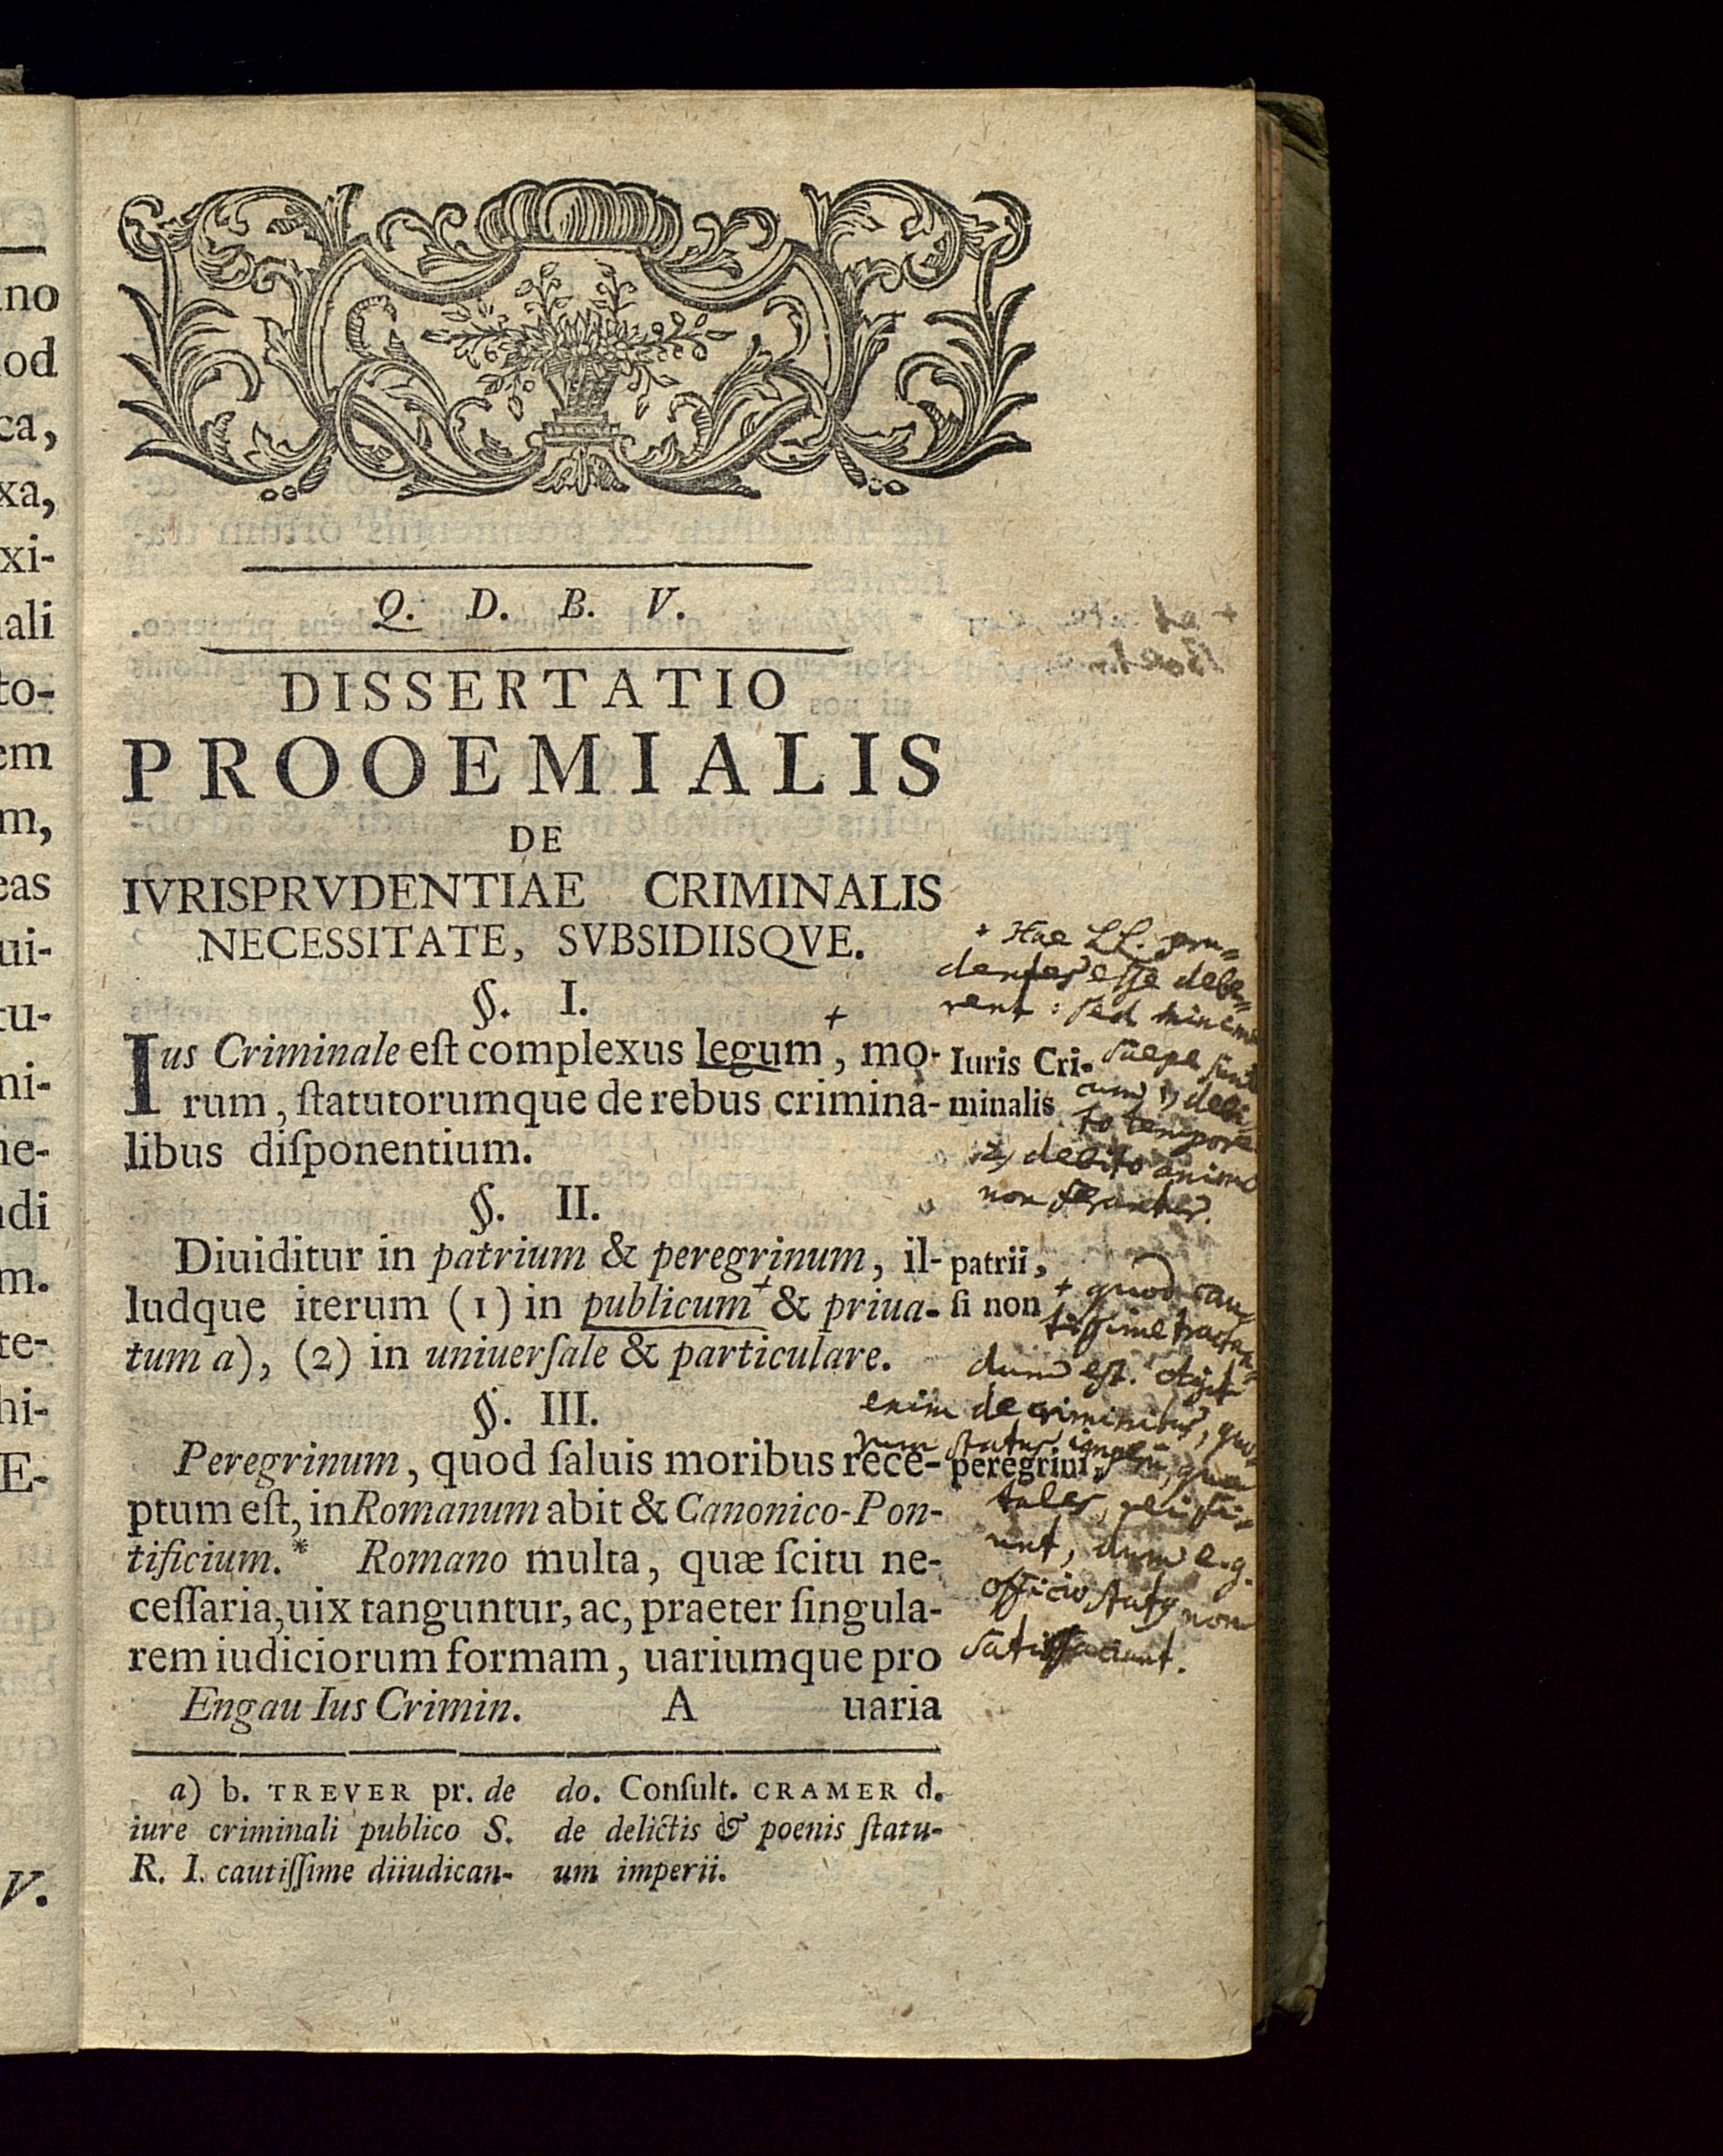 ino
od
ca,
xa,
xi-
ali
to-
em
m,
eas
ui-
tu-
ni-
ne-
ndi
m.
te-
hi-
E-
V.
Q. D. B. V.
DISSERTATIO
PROOEMIALIS
DE
IVRISPRVDENTIAE CRIMINALIS
NECESSITATE, SVBSIDIISQVE.
§. I.
+
Ius Criminale eſt complexus legum, mo-
rum, ſtatutorumque de rebus crimina-
libus diſponentium.
Iuris Cri-
minalis
§. II.
Diuiditur in patrium & peregrinum, il-
ludque iterum (1) in publicum + & priua-
tum a), (2) in uniuerſale & particulare.
patrii,
ſi non
§. III.
Peregrinum, quod ſaluis moribus rece-
ptum eſt, in Romanum abit & Canonico-Pon-
tificium.* Romano multa, quæ ſcitu ne-
ceſſaria, uix tanguntur, ac, praeter ſingula-
rem iudiciorum formam, uariumque pro
peregrini,
Engau Ius Crimin. A uaria
a) b. TREVER pr. de
iure criminali publico S.
R. I. cautiſſime diiudican-
do. Conſult. CRAMER d.
de delictis & poenis ſtatu-
um imperii.
+ Hae LL. pru-
dentes eſſe debe-
rent: sed minime
saepe sunt
cum 1) debi-
to tempore
2) debito animo
non ferantur.
+ quod cau-
tiſſime tractan-
dum eſt. Agit
enim de criminibus, quo-
rum status imperii, qua
tales,
unt, dum e.g.
officio status non
satisfaciunt.